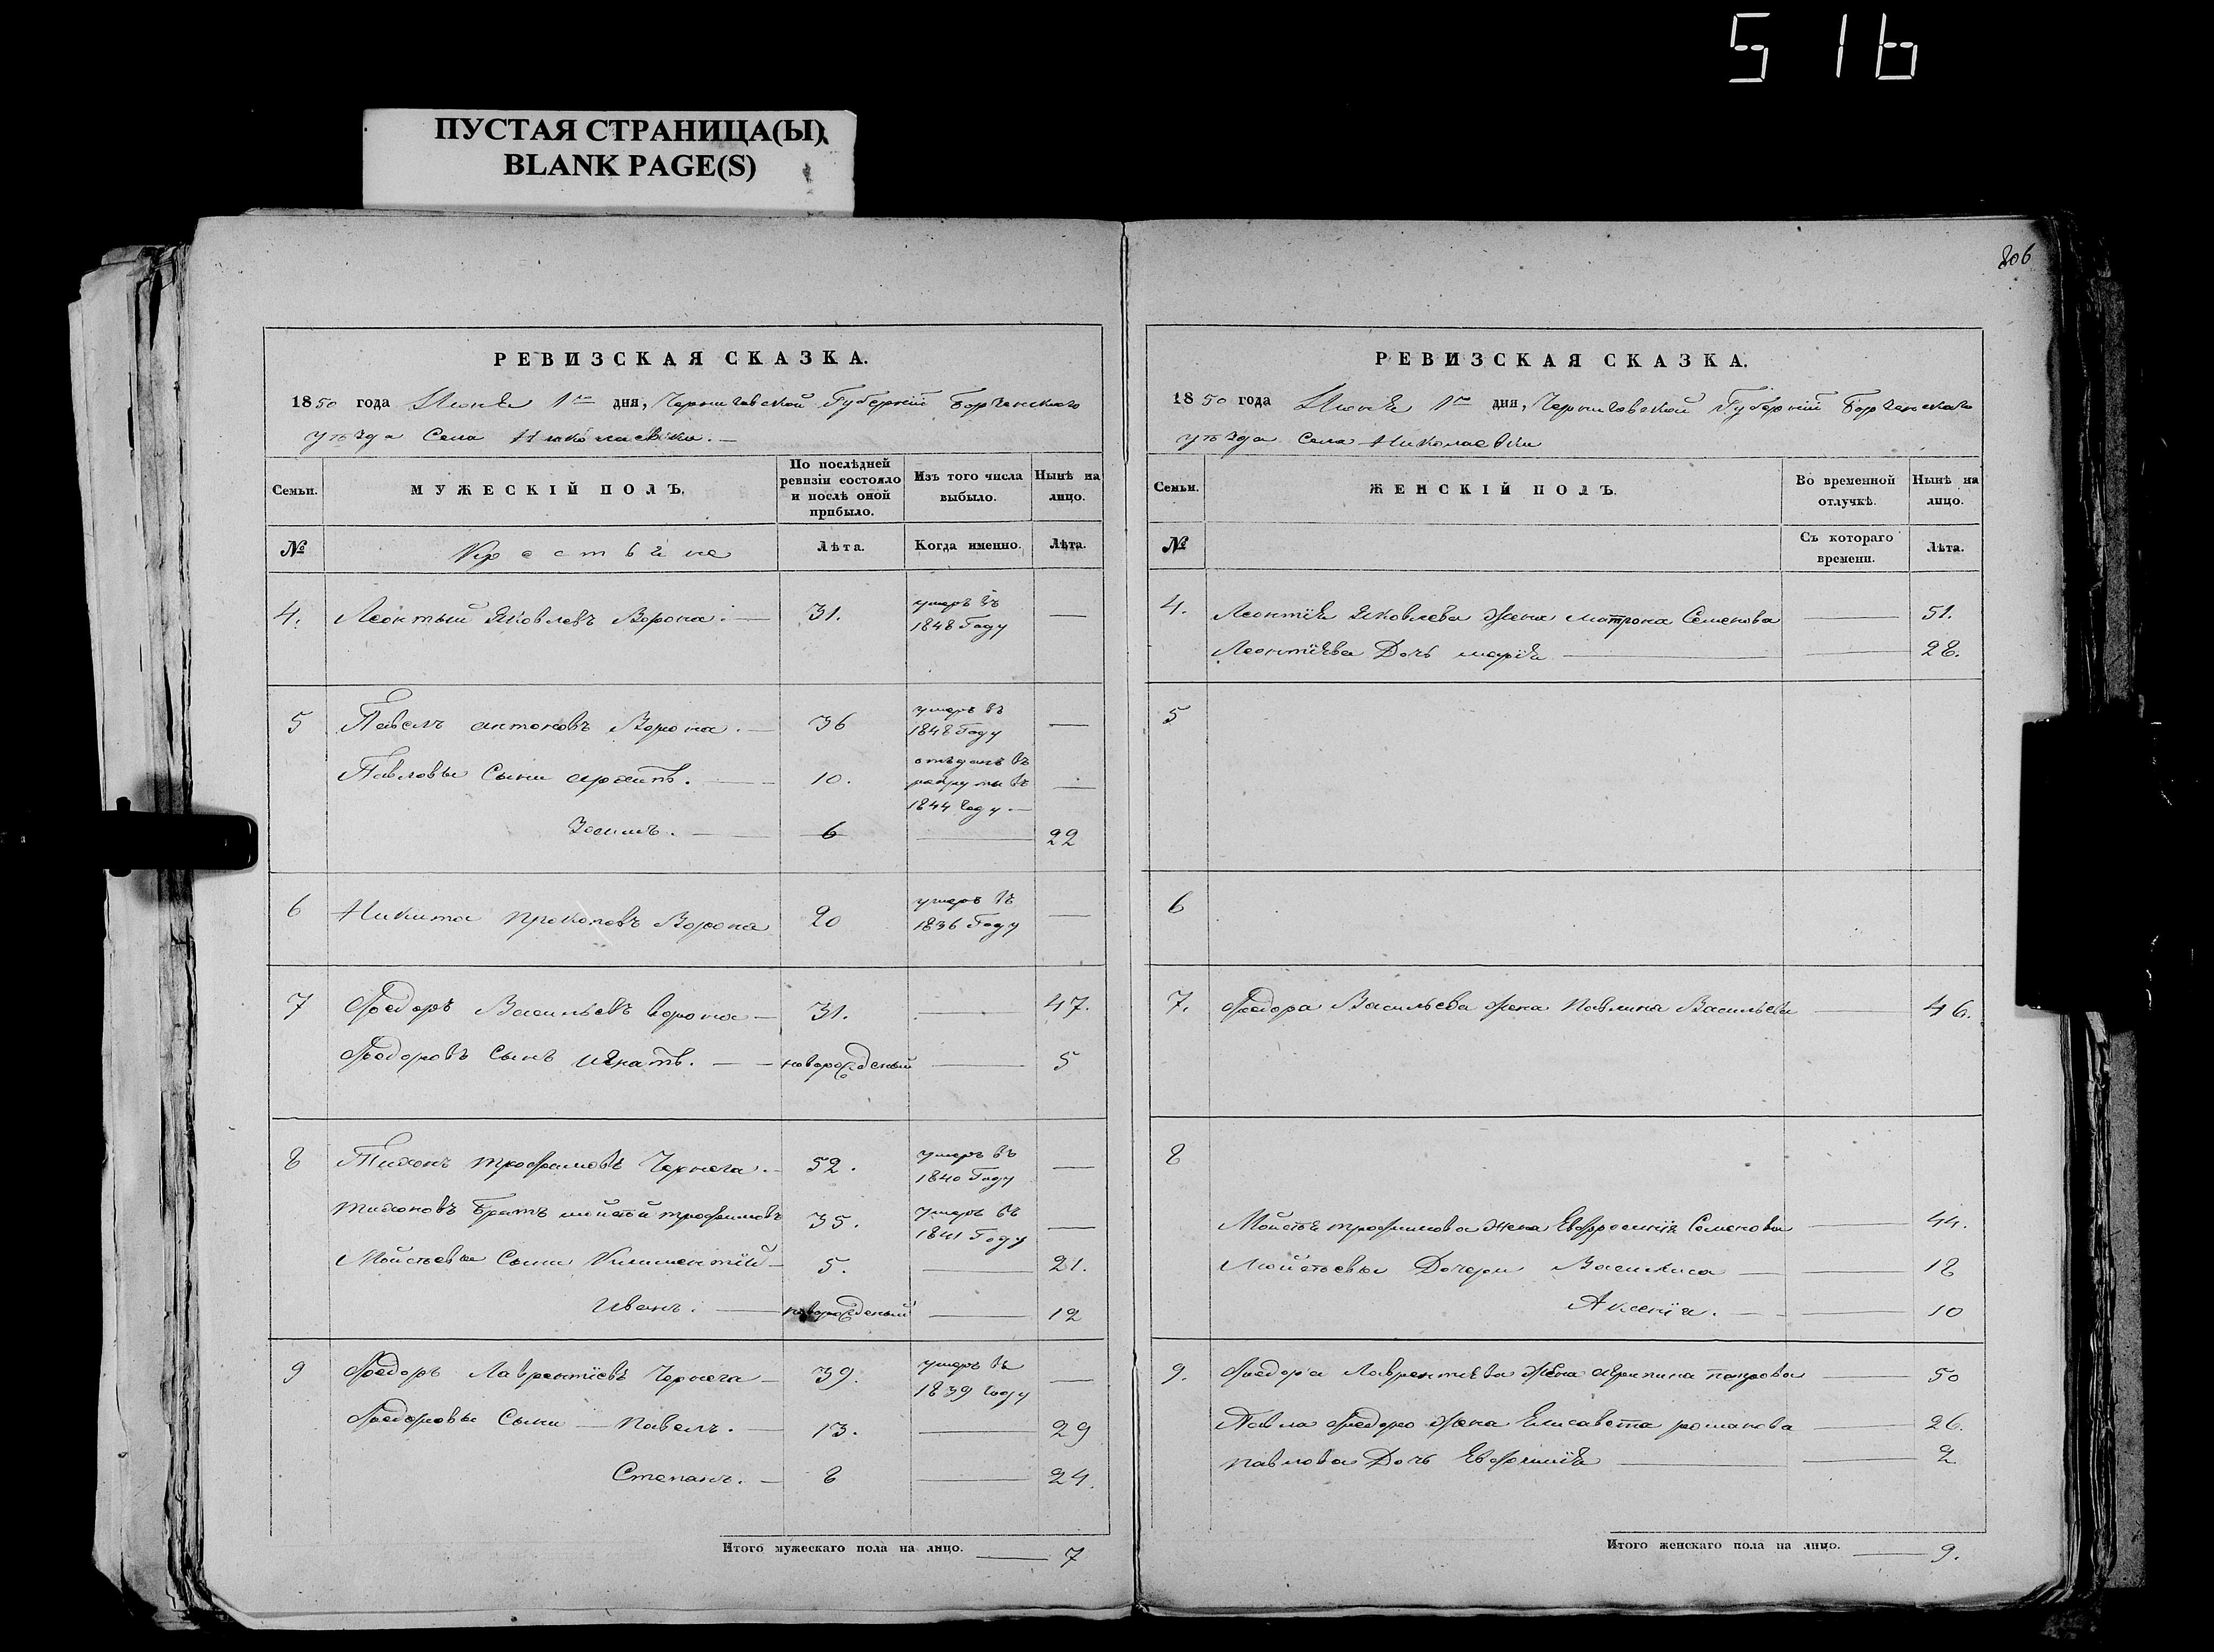 516
ПУСТАЯ СТРАНИЦА(Ы)
BLANK PAGE(S)
РЕВИЗСКАЯ СКАЗКА.
1850 года Июня 1го дня, Черниговской Губернiи Борзенского
уѣзда Села Николаевки.
Семьи.
МУЖЕСКІЙ ПОЛЪ.
По послѣдней ревизіи состояло и послѣ оной прибыло.
Изъ того числа выбыло.
Нынѣ на лицо.
№
Крестьяне
Лѣта.
Когда именно.
Лѣта.
4. Леонтый Яковлевъ Ворона. — 31. умеръ въ 1848 Году —
5 Павелъ антоновъ Ворона. — 36 умеръ въ 1848 Году —
Павловы Сыни архипъ. — 10. отъданъ въ рекруты въ 1844 году. — —
Зосимъ. — 6 — 22
6 Никита прокоповъ Ворона 20 умеръ въ 1836 Году —
7 Фѣодоръ Васильевъ ворона — 31. — 47.
Фѣодоровъ Сынъ игнатъ. — новорожденый — 5
8 Тихонъ трофимовъ Чернега. — 52. умеръ въ 1840 Году —
тихоновъ Братъ мойсей трофимовъ 35. умеръ въ 1841 Году —
Мойсѣевы Сыни Климентiй — 5. — 21.
Иванъ. — новорожденый — 12
9 Фѣодоръ Лаврентiевъ Чернега — 39. умеръ въ 1839 году —
Фѣодоровы Сыни — павелъ. — 13. — 29
Степанъ. — 8 — 24.
Итого мужескаго пола на лицо. — 7
806
РЕВИЗСКАЯ СКАЗКА.
1850 года Июня 1го дня, Черниговской Губернiи Борзенского
уѣзда Села Николаевки
Семьи.
ЖЕНСКІЙ ПОЛЪ.
Во временной отлучкѣ.
Нынѣ на лицо.
№
Съ котораго времени.
Лѣта.
4. Леонтiя Яковлева Жена матрона Семенова — 51.
Леонтiева Дочь марiя — — 28.
5
6
7. Фѣодора Васильева жена павлина Васильева — 46.
8
Мойсѣя трофимова жена Евфросинiя Семенова — 44.
Мойсѣевы Дочери Василиса — — 18
Аксенiя. — — 10
9. Фѣодора Лаврентiева жена агрипина петрова — 50
Павла Фѣодоро жена Елисавета романова — 26.
павлова Дочь Евфимiя — — 2
Итого женскаго пола на лицо. — 9.